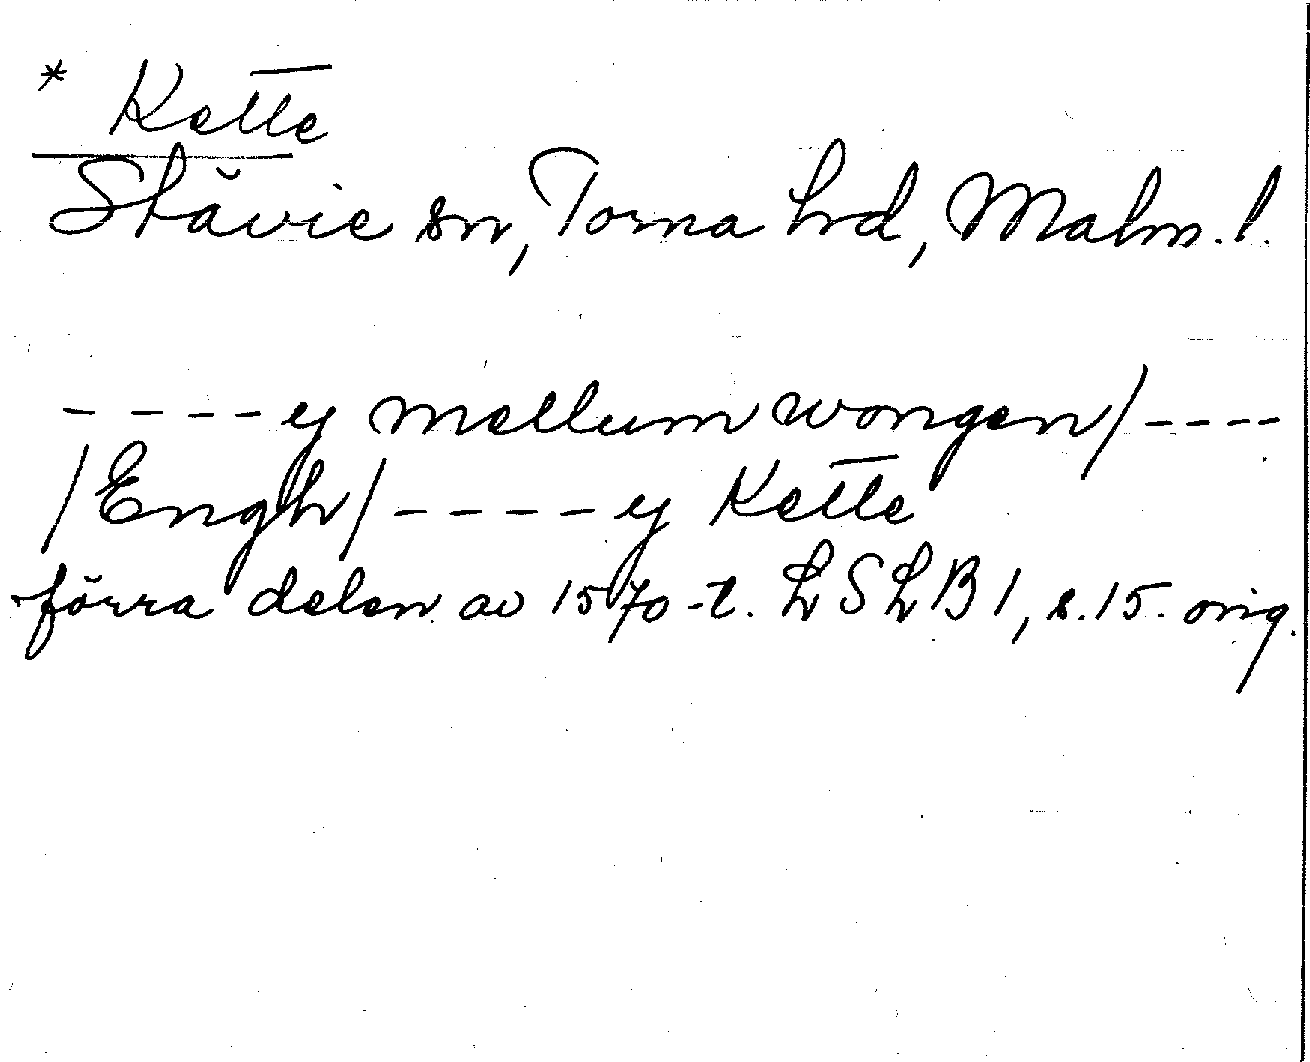 * Kette
Stävie sn, Torna hrd, Malm. l.
- - - - ey mellum wongen/- - - -
/Engh/- - - - - ey Kette
förra delen av 1570-t. LSLB1, s.15. orig.